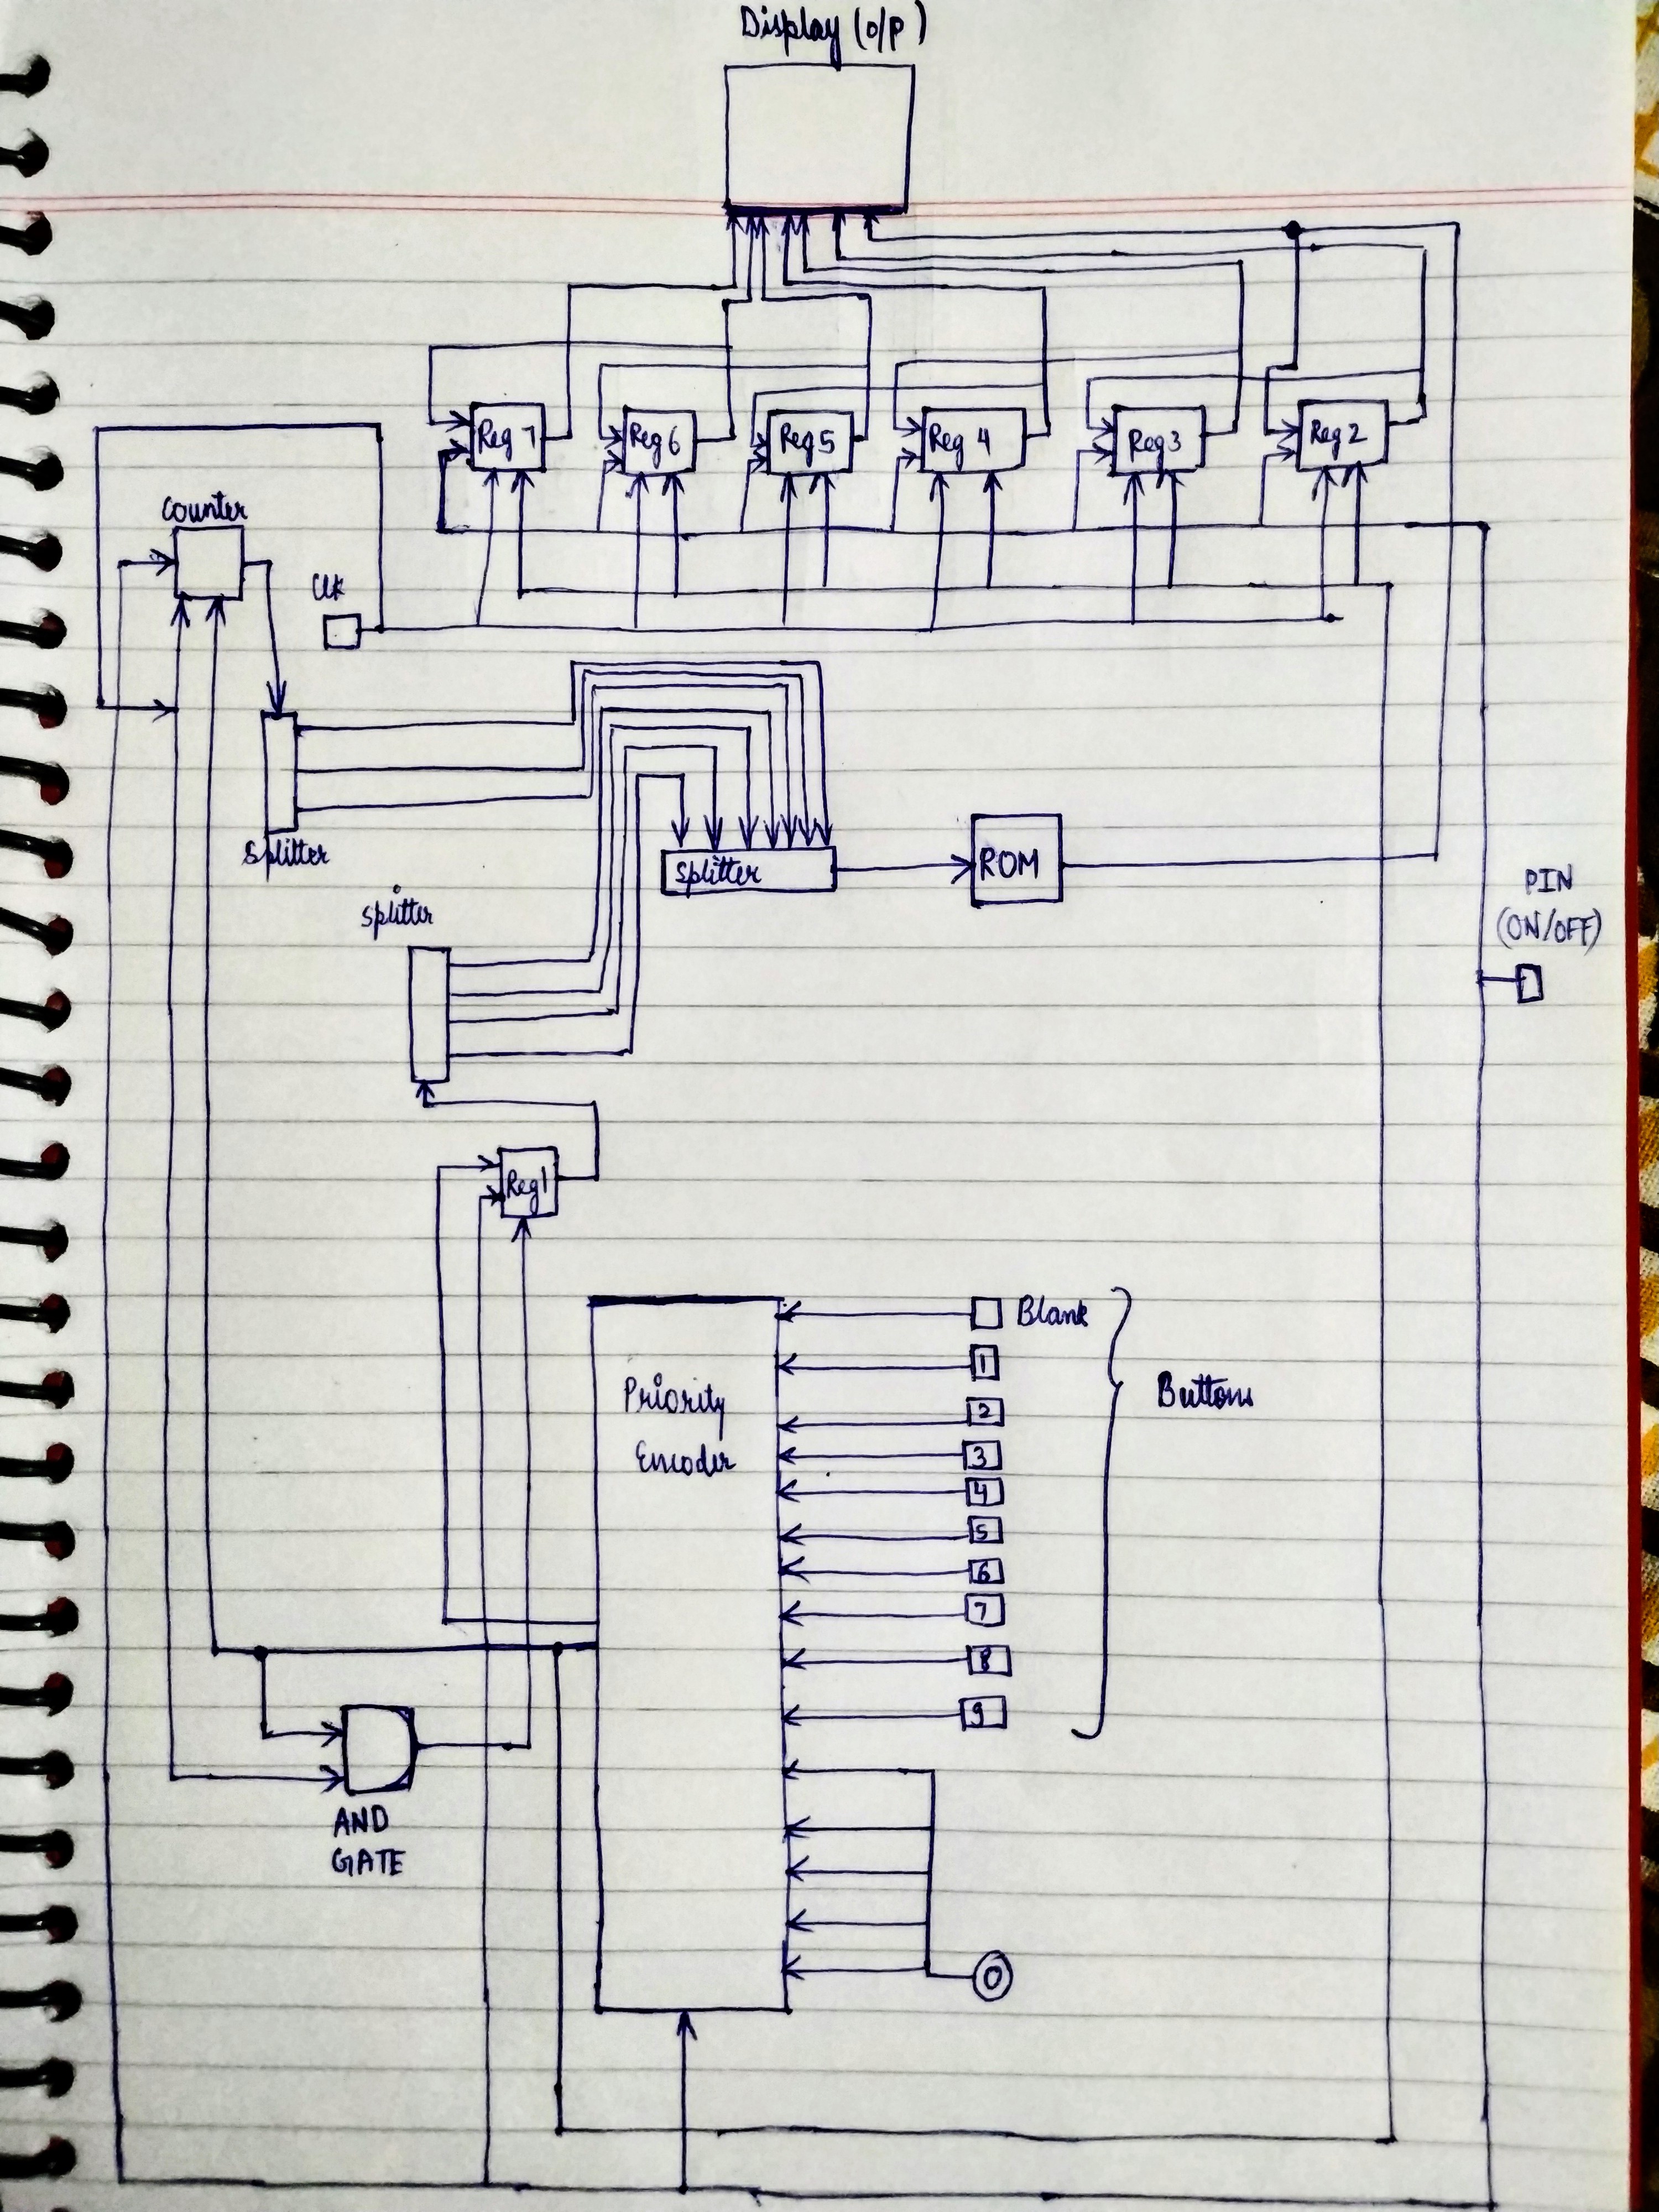 Display (O/P)
Reg 7
Reg 6
Reg 5
Reg 4
Reg 3
Reg 2
Counter
Clk
Splitter
Splitter
ROM
PIN
(ON/OFF)
Splitter
Reg 1
Blank
1
Priority
Encoder
Buttons
2
3
4
5
6
7
8
9
AND
GATE
0